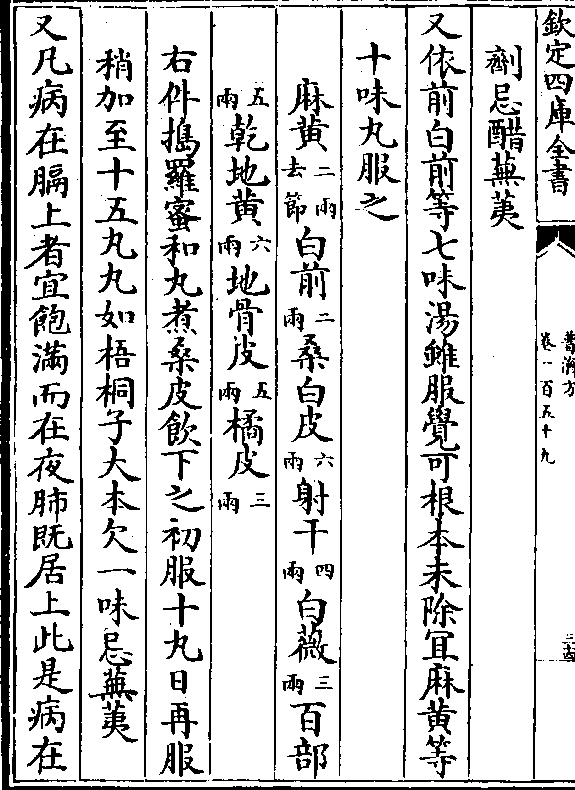 欽定四庫全書
普濟方
卷一百五十九
劑忌醋蕪荑
又依前白前等七味湯雖服覺可根本未除宜麻黄等
十味丸服之
麻黄二兩去節白前二兩桑白皮六兩射干四兩白薇三兩百部
五兩乾地黄六兩地骨皮五兩橘皮三兩
右件搗羅蜜和丸煮桑皮飲下之初服十九日再服
稍加至十五丸丸如梧桐子大本欠一味忌蕪荑
又凡病在膈上者宜飽滿而在夜肺既居上此是病在